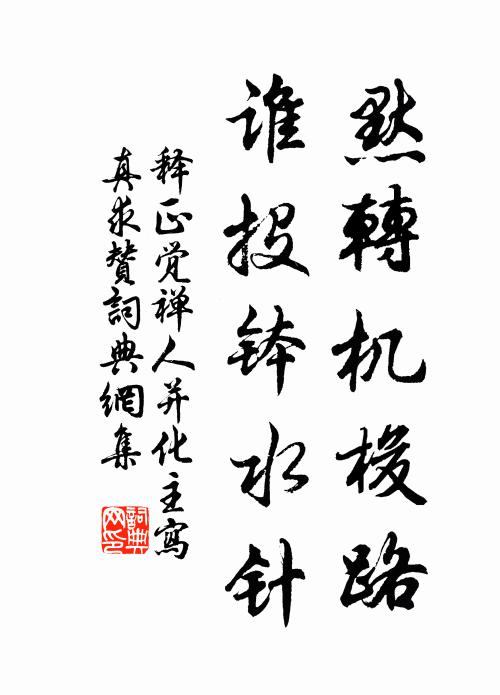 默轉机梭路
谁投钵水针
释正觉禅人并化主寫
真求贊詞典網集
詞典网印